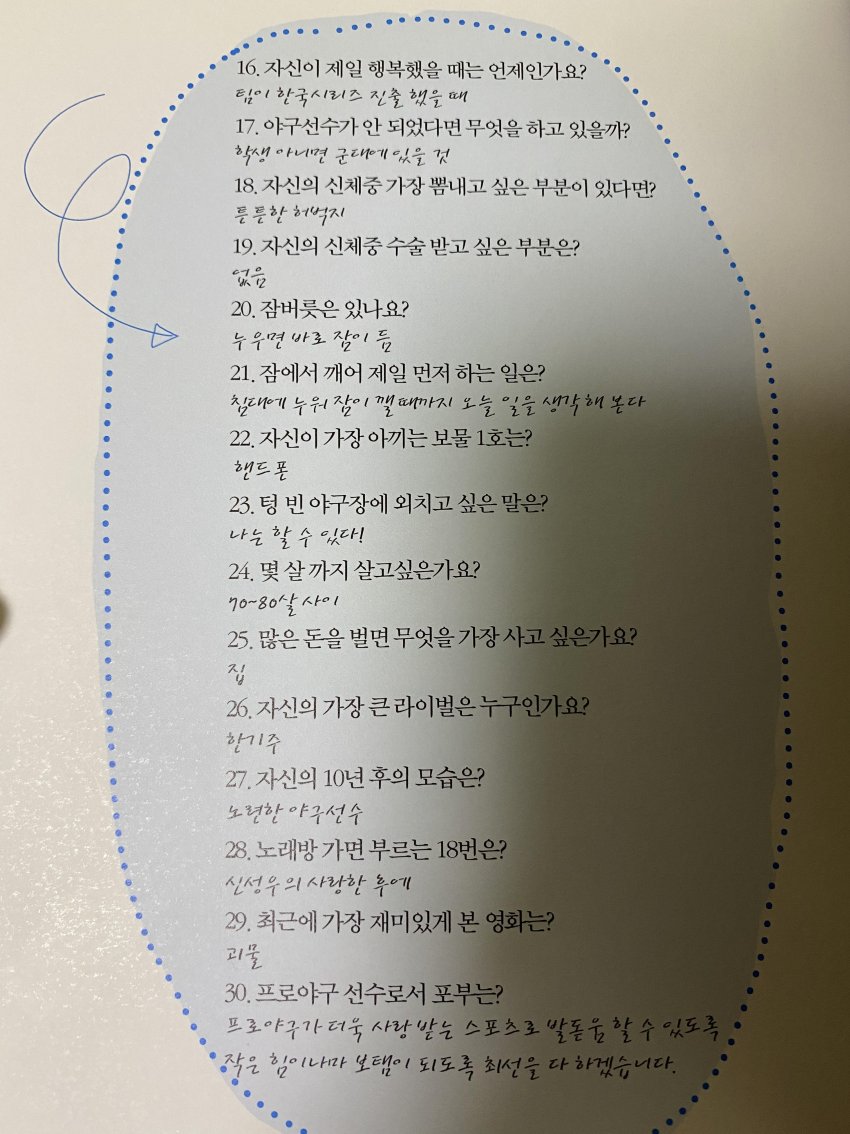 16. 자신이 제일 행복했을 때는 언제인가요?
팀이 한국시리즈 진출 했을 때
17. 야구선수가 안 되었다면 무엇을 하고 있을까?
학생 아니면 군대에 있을 것
18. 자신의 신체중 가장 뽐내고 싶은 부분이 있다면?
튼튼한 허벅지
19. 자신의 신체중 수술 받고 싶은 부분은?
없음
20. 잠버릇은 있나요?
누우면 바로 잠이 듬
21. 잠에서 깨어 제일 먼저 하는 일은?
침대에 누워 잠이 깰때까지 오늘 일을 생각해 본다
22. 자신이 가장 아끼는 보물 1호는?
핸드폰
23. 텅 빈 야구장에 외치고 싶은 말은?
나는 할 수 있다!
24. 몇 살 까지 살고싶은가요?
70~80살 사이
25. 많은 돈을 벌면 무엇을 가장 사고 싶은가요?
집
26. 자신의 가장 큰 라이벌은 누구인가요?
한기주
27. 자신의 10년 후의 모습은?
노련한 야구선수
28. 노래방 가면 부르는 18번은?
신성우의 사랑한 후에
29. 최근에 가장 재미있게 본 영화는?
괴물
30. 프로야구 선수로서 포부는?
프로야구가 더욱 사랑 받는 스포츠로 발돋움 할 수 있도록
작은 힘이나마 보탬이 되도록 최선을 다 하겠습니다.